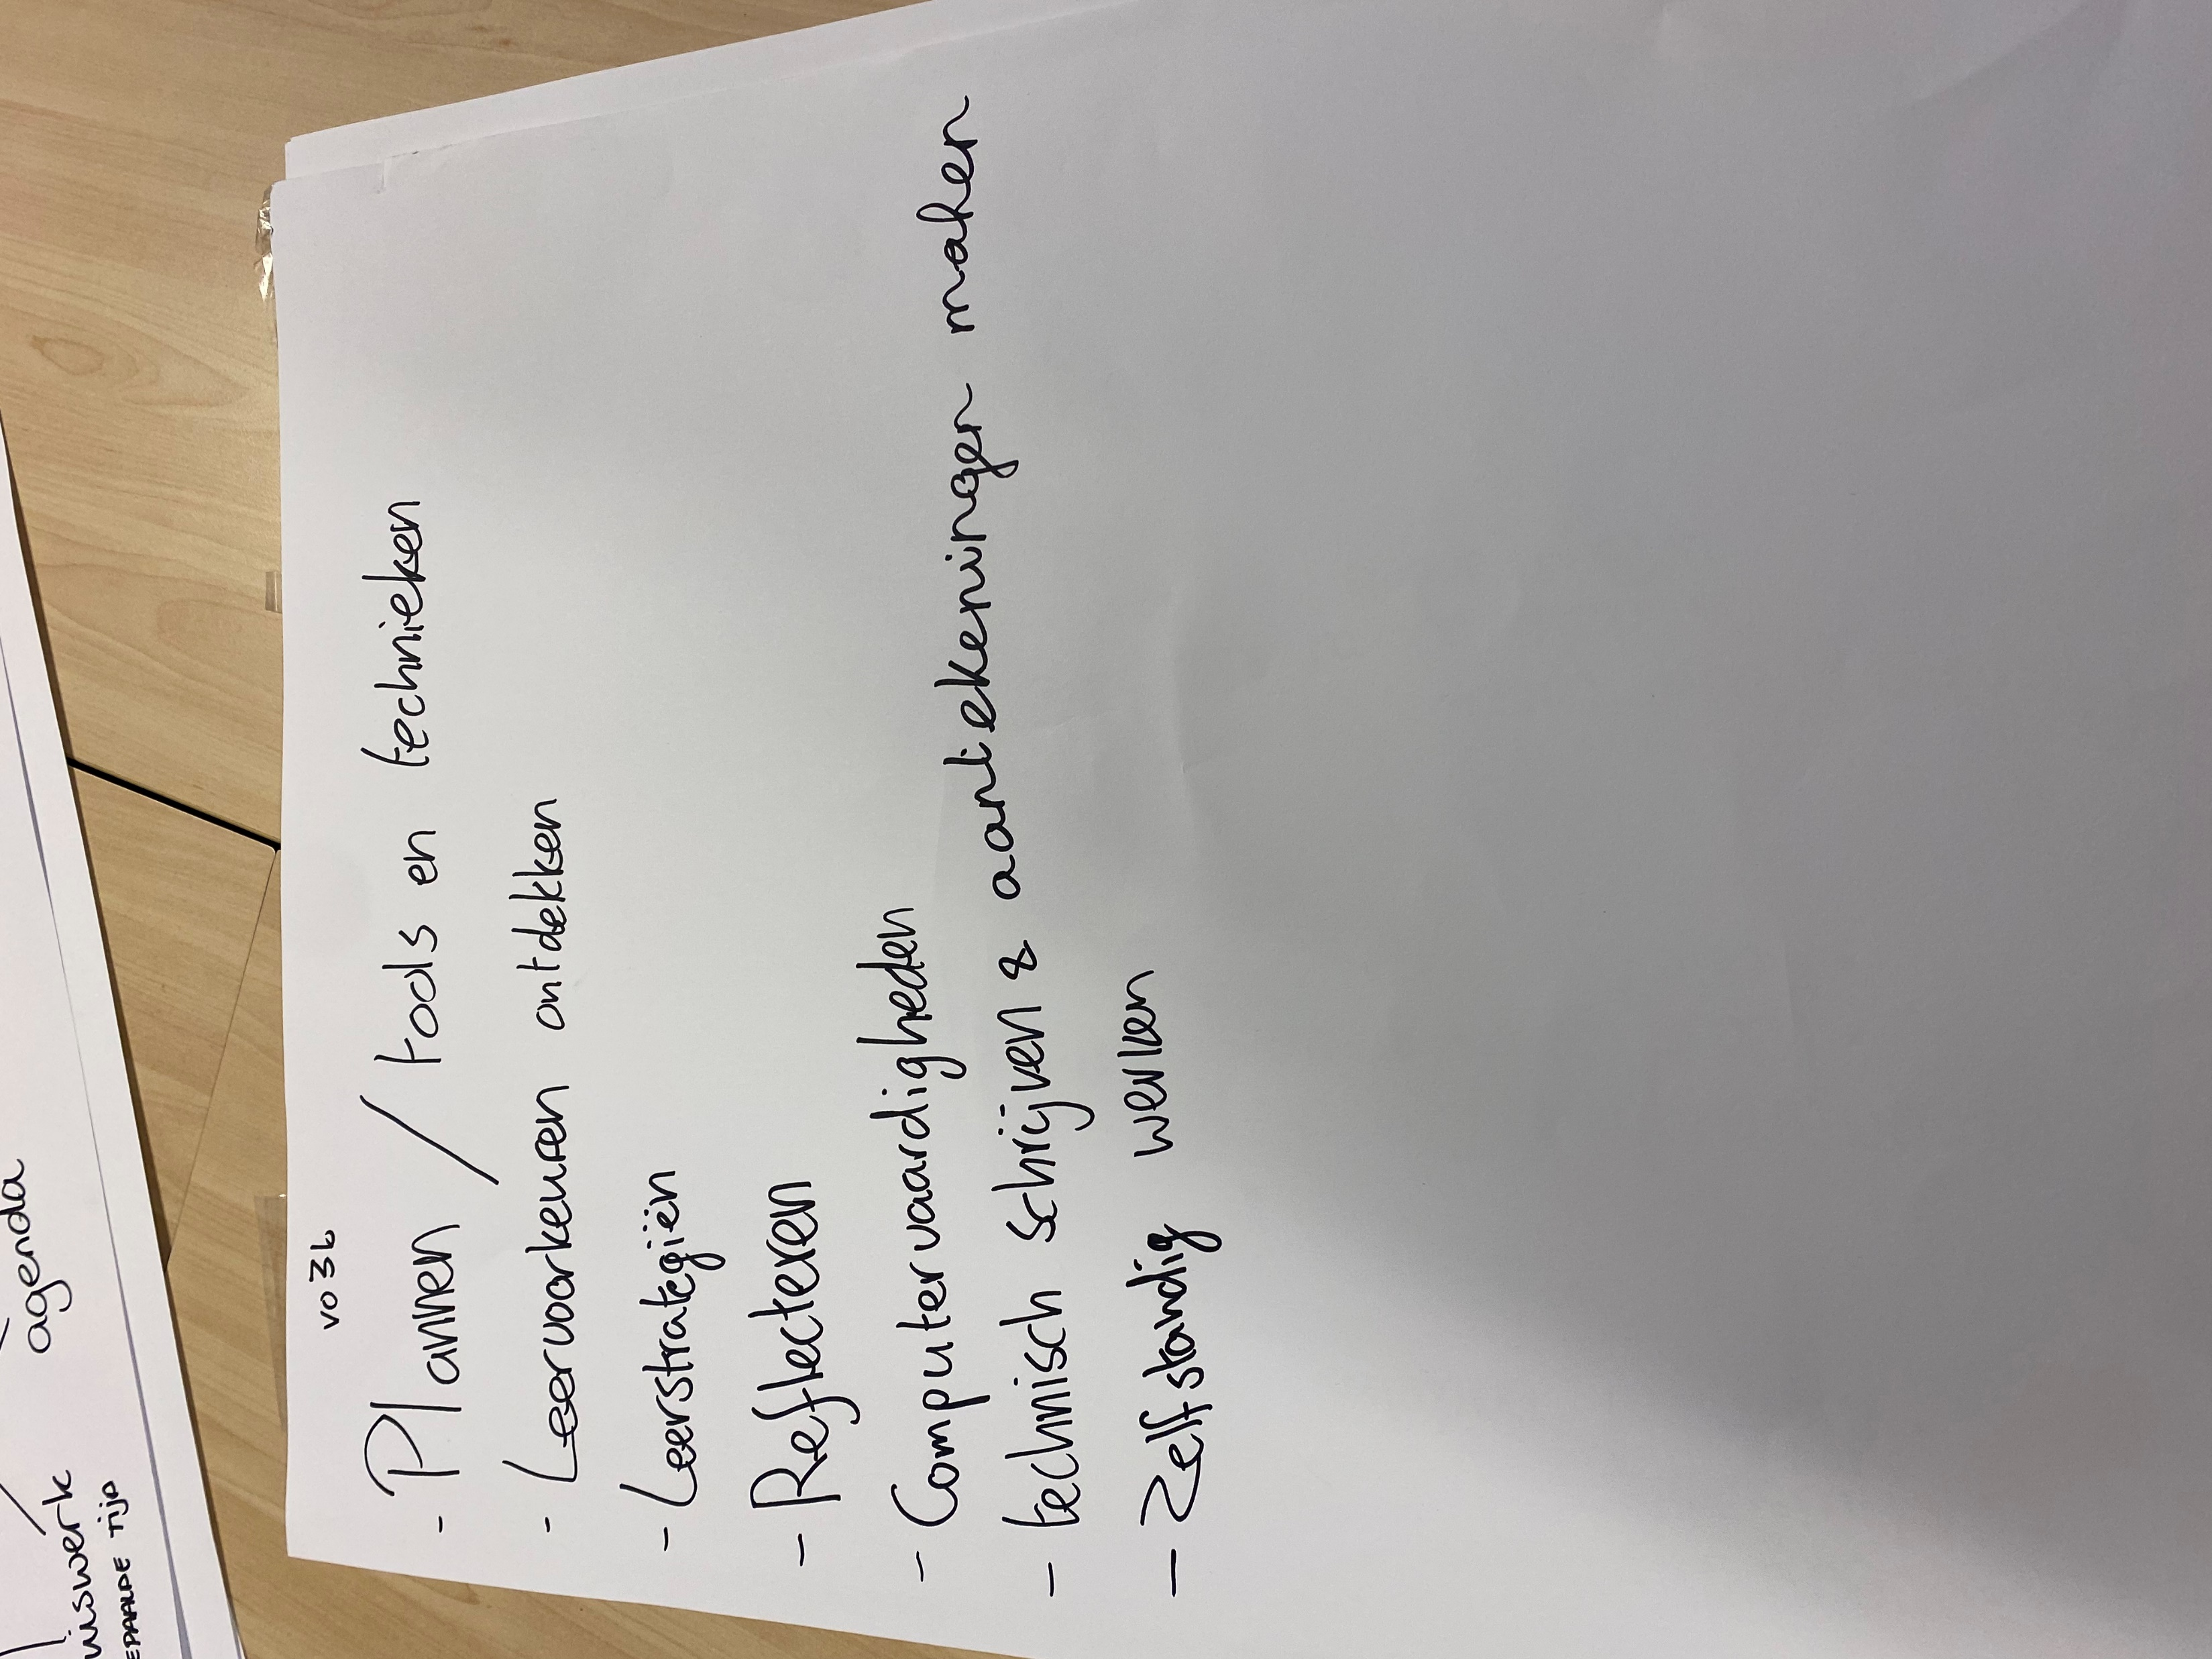 agenda
uiswerk
EPAALDE TIJD
vo3b
- Plannen / tools en technieken
- Leervoorkeuren ontdekken
- Leerstrategiën
- Reflecteren
- Computervaardigheden
- technisch schrijven & aantekeningen maken
- Zelfstandig werken